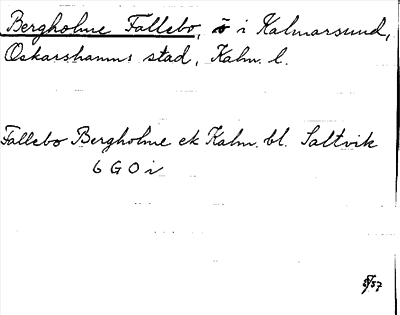 Bergholme Fallebo, ö i Kalmarsund,
Oskarshamns stad, Kalm. l.
Fallebo Bergholme ek Kalm. bl. Saltvik
6 G O i